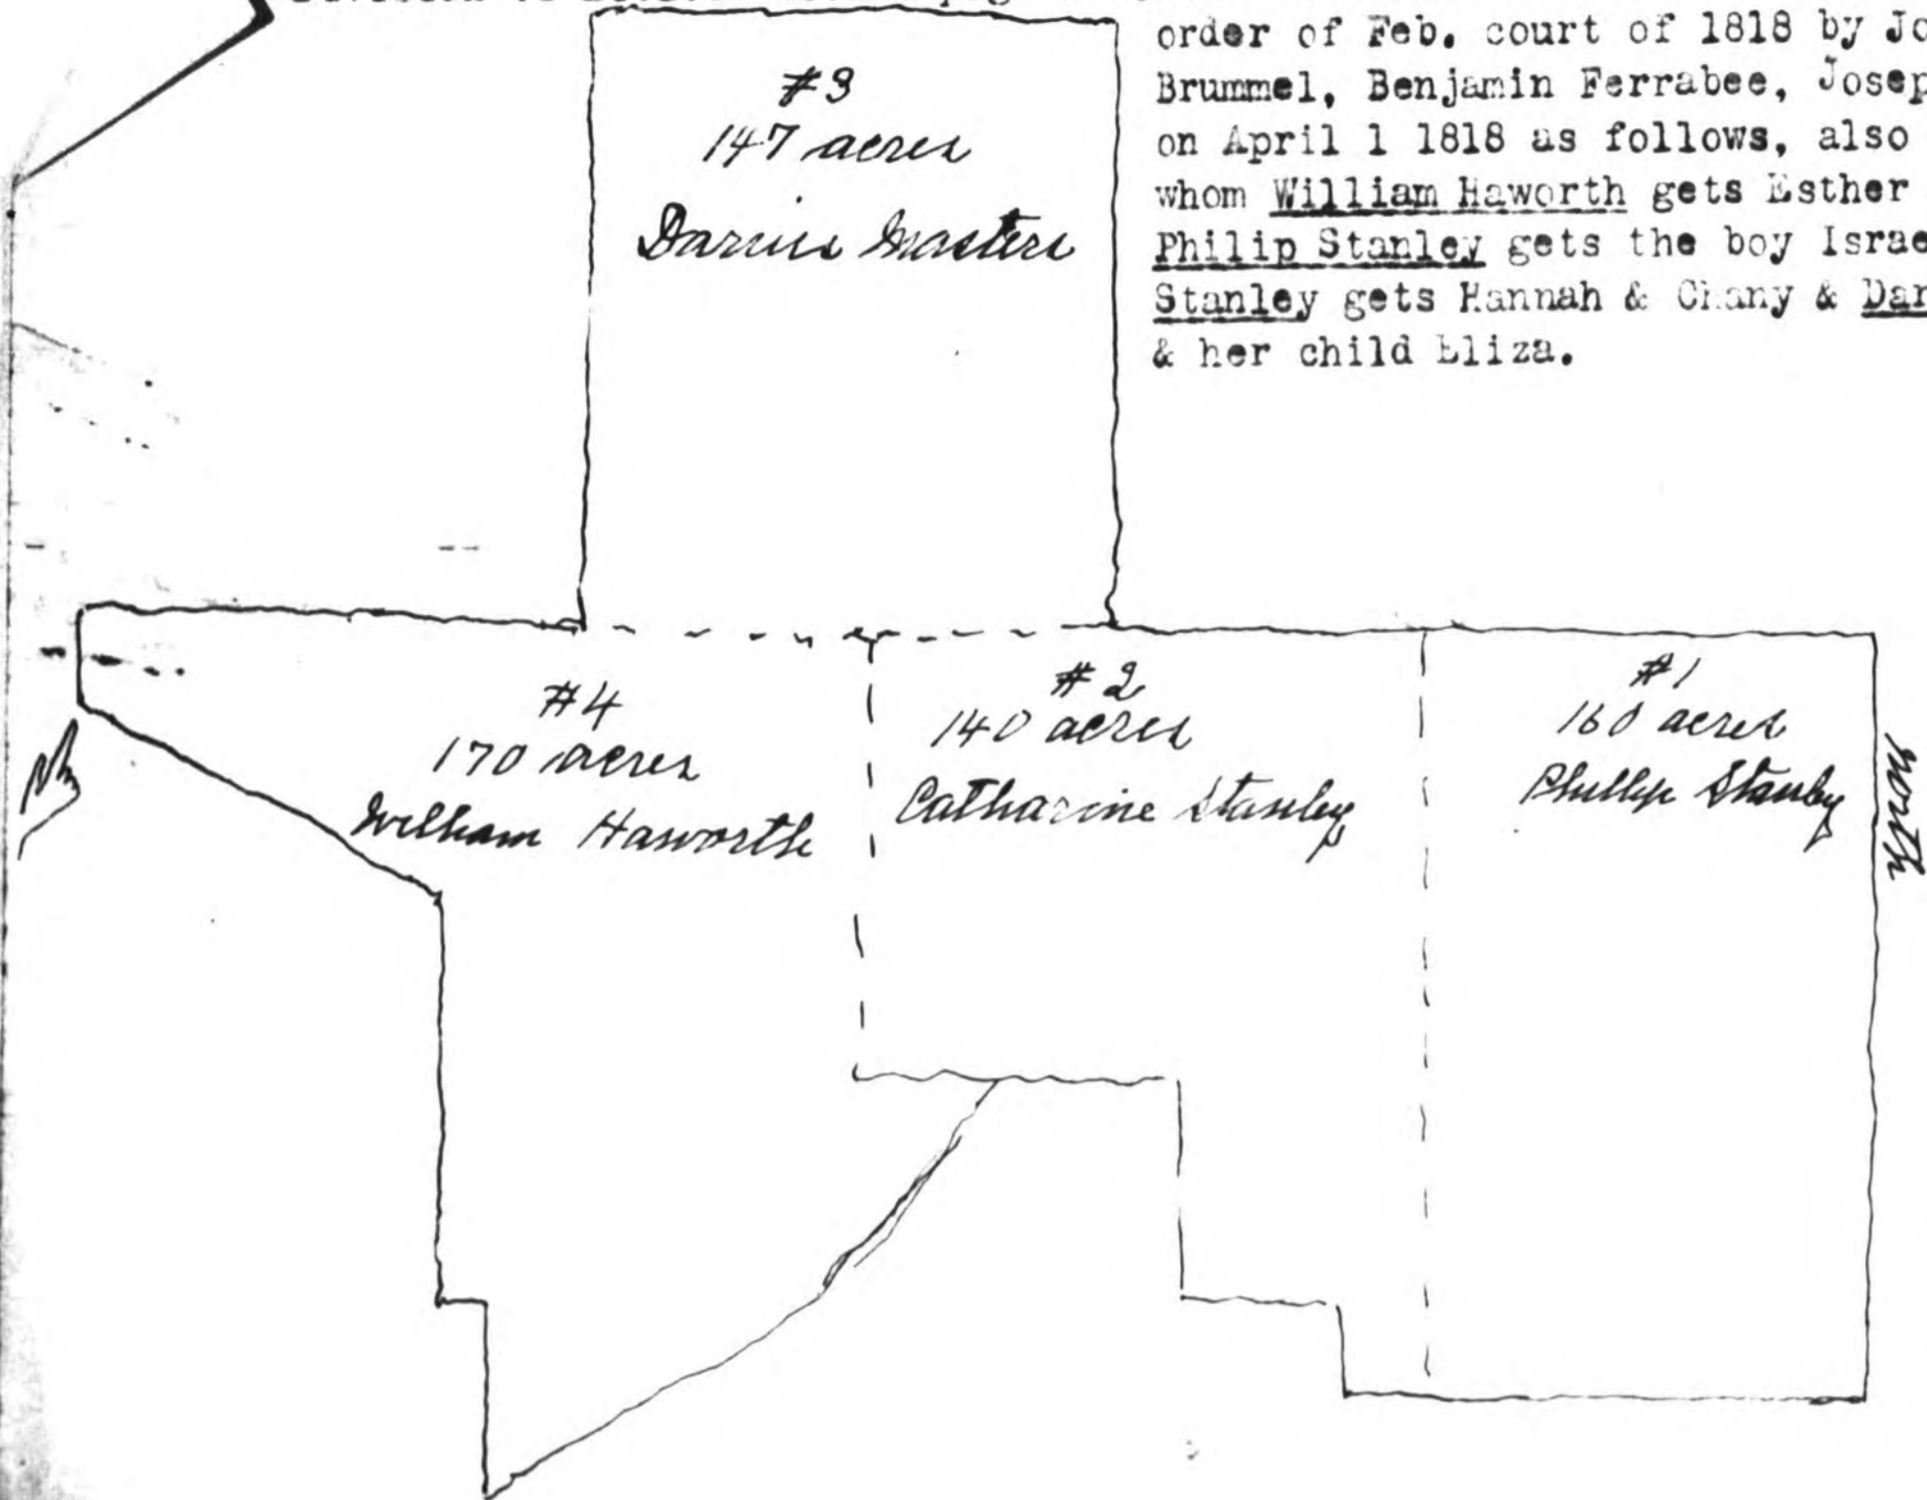 order of Feb. court of 1818 by Jo
Brummel, Benjamin Ferrabee, Josep
on April 1 1818 as follows, also
whom William Haworth gets Esther
Philip Stanley gets the boy Israe
Stanley gets Hannah & Chany & Dar
& her child Eliza.
#3
147 acres
Darius Masters
#4
170 acres
William Haworth
#2
140 acres
Catharine Stanley
#1
160 acres
Phillip Stanley
North